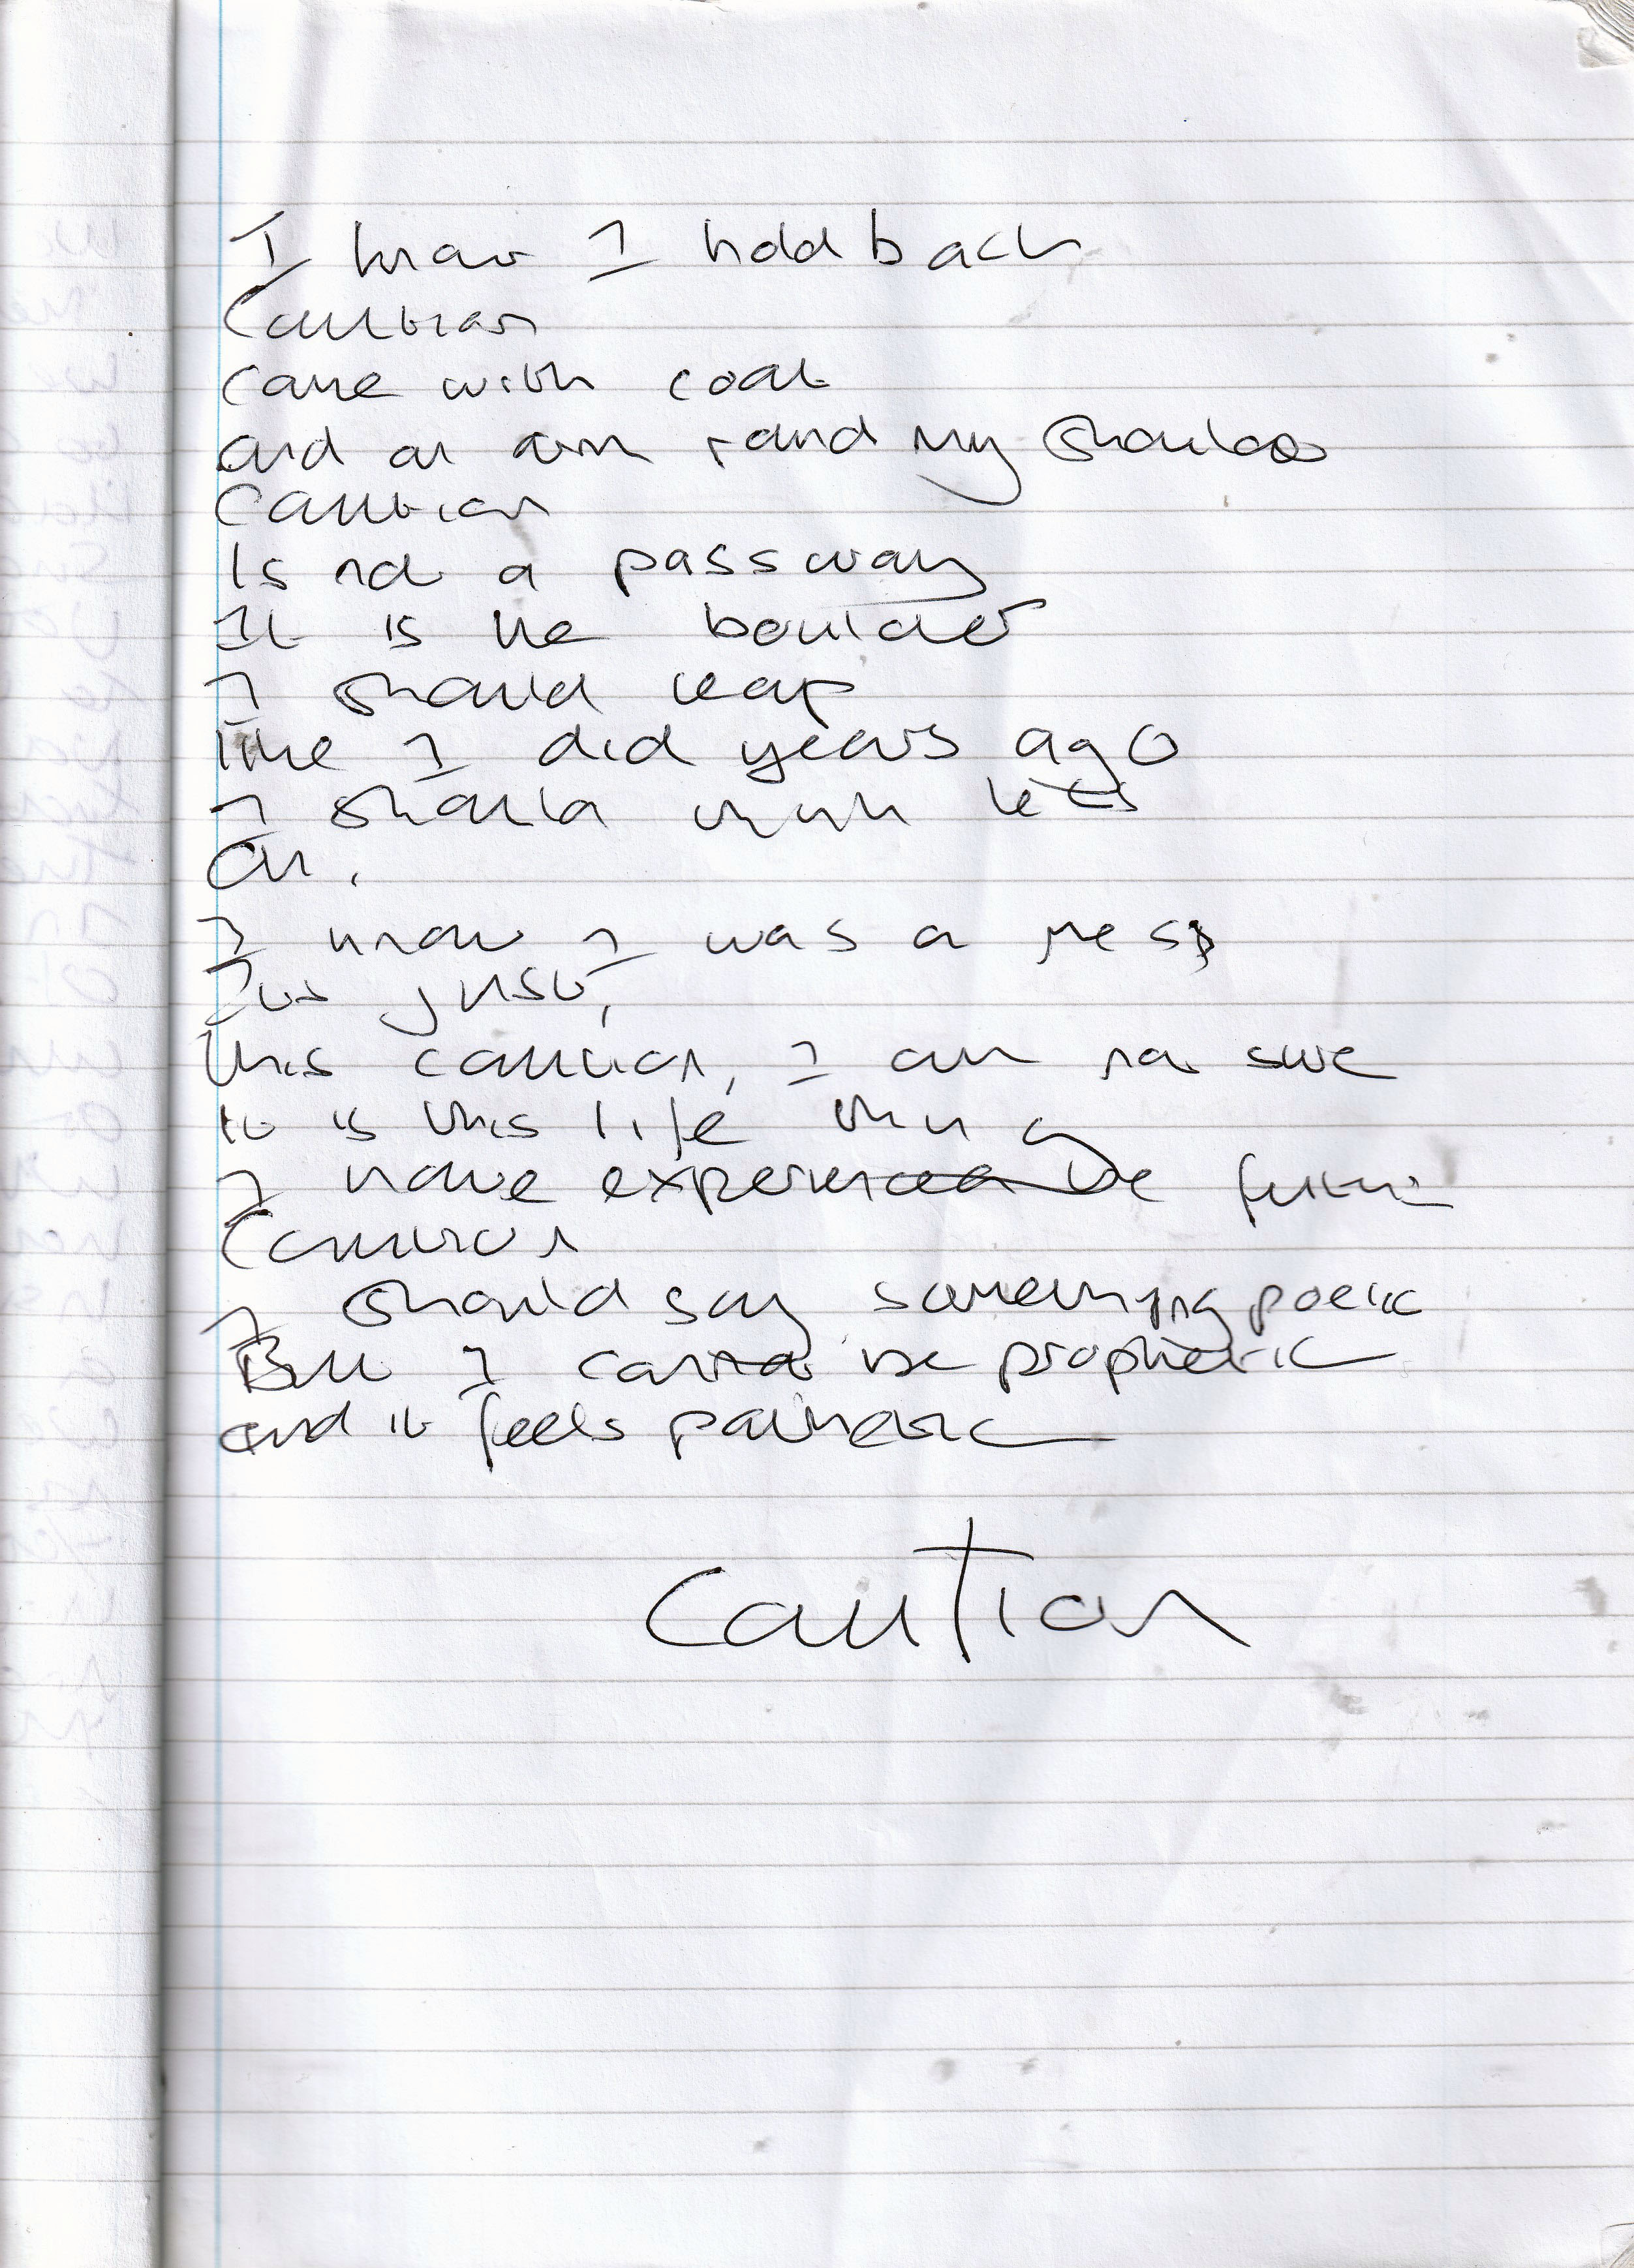 I know I hold back
Caution
came with coat
and an arm round my shoulder
Caution
Is not a passway
It is the boulder
I should leap
like I did years ago
I should think less
On.
I know I was a mess
just,
this caution, I am not sure
it is this life thing
I have experienced the future
Caution
I should say something poetic
But I cannot be prophetic
and it feels pathetic
Caution